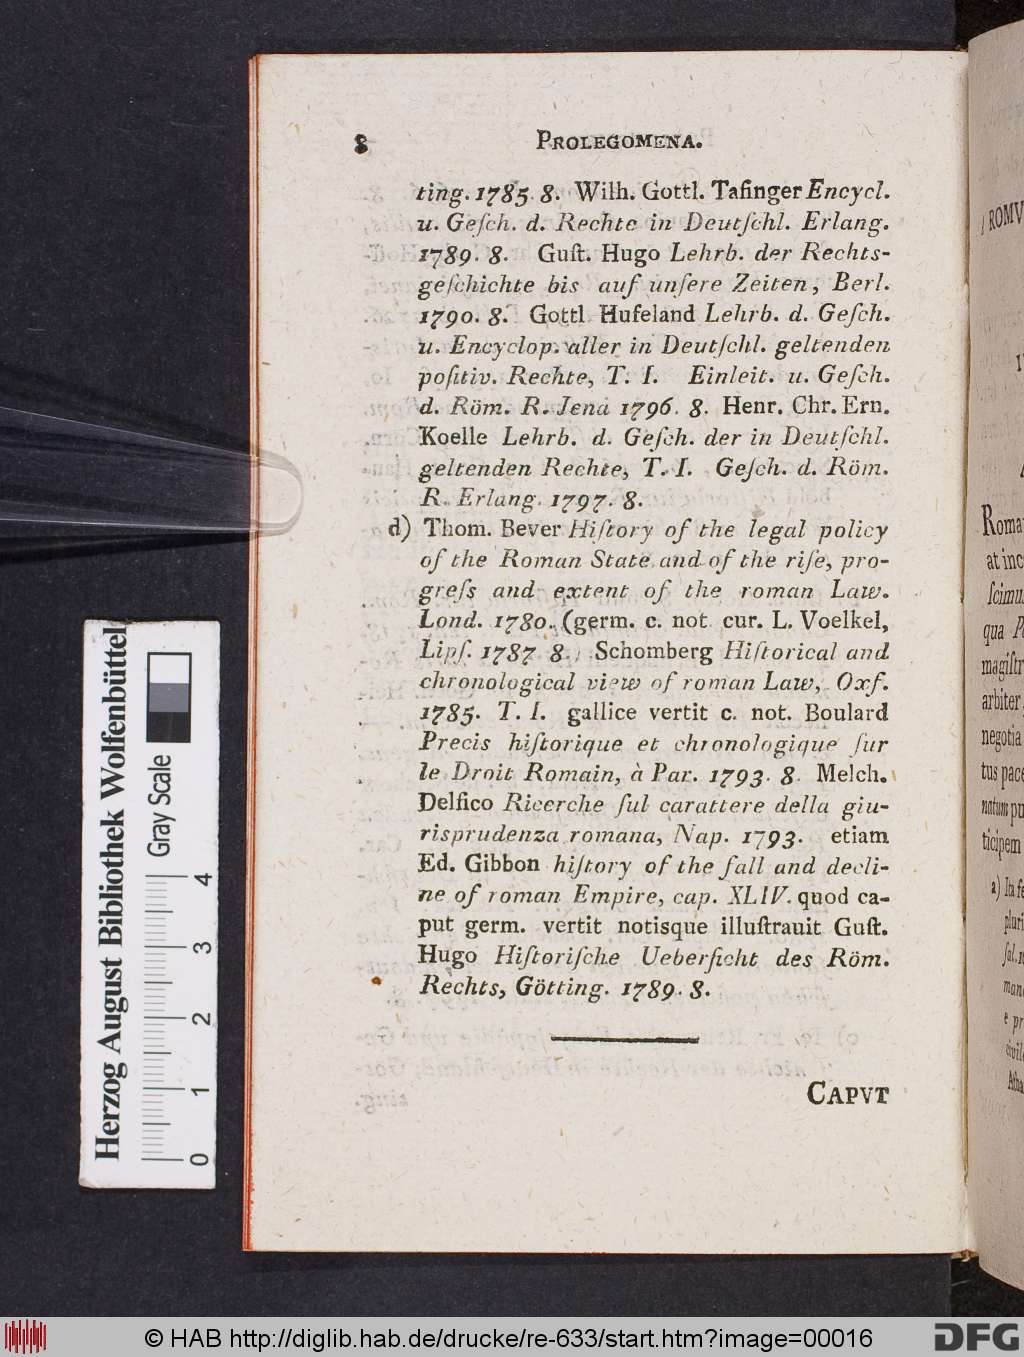 8 PROLEGOMENA.
ting. 1785. 8. Wilh. Gottl. Taſinger Encycl.
u. Geſch. d. Rechte in Deutſchl. Erlang.
1789. 8. Guſt. Hugo Lehrb. der Rechts-
geſchichte bis auf unſere Zeiten, Berl.
1790. 8. Gottl. Hufeland Lehrb. d. Geſch.
u. Encyclop. aller in Deutſchl. geltenden
poſitiv. Rechte, T. I. Einleit. u. Geſch.
d. Röm. R. Jena 1796. 8. Henr. Chr. Ern.
Koelle Lehrb. d. Geſch. der in Deutſchl.
geltenden Rechte, T. I. Geſch. d. Röm.
R. Erlang. 1797. 8.
d) Thom. Bever Hiſtory of the legal policy
of the Roman State and of the riſe, pro-
greſs and extent of the roman Law.
Lond. 1780. (germ. c. not cur. L. Voelkel,
Lipſ. 1787 8.) Schomberg Hiſtorical and
chronological view of roman Law, Oxf.
1785. T. I. gallice vertit c. not. Boulard
Precis hiſtorique et chronologique ſur
le Droit Romain, à Par. 1793. 8. Melch.
Delfico Ricerche ſul carattere della giu-
risprudenza romana, Nap. 1793. etiam
Ed. Gibbon hiſtory of the fall and decli-
ne of roman Empire, cap. XLIV. quod ca-
put germ. vertit notisque illuſtrauit Guſt.
Hugo Hiſtoriſche Ueberſicht des Röm.
Rechts, Götting. 1789. 8.
CAPVT
ROMV
Roma
at inc
ſcimu
qua P
magiſtr
arbiter
negotia
tus pace
natum pu
ticipem
a) Ita fe
pluri
ſal.
man
e pr
civil
Atha
Herzog August Bibliothek Wolfenbüttel
Gray Scale
0 1 2 3 4
© HAB http://diglib.hab.de/drucke/re-633/start.htm?image=00016
DFG